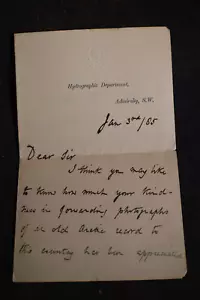 Hydrographic Department,
Admiralty, S.W.
Jan 3rd/85
Dear Sir
I think you may like
to know how much your kind-
ness in forwarding photographs
of an old Arctic record to
this country has been appreciated